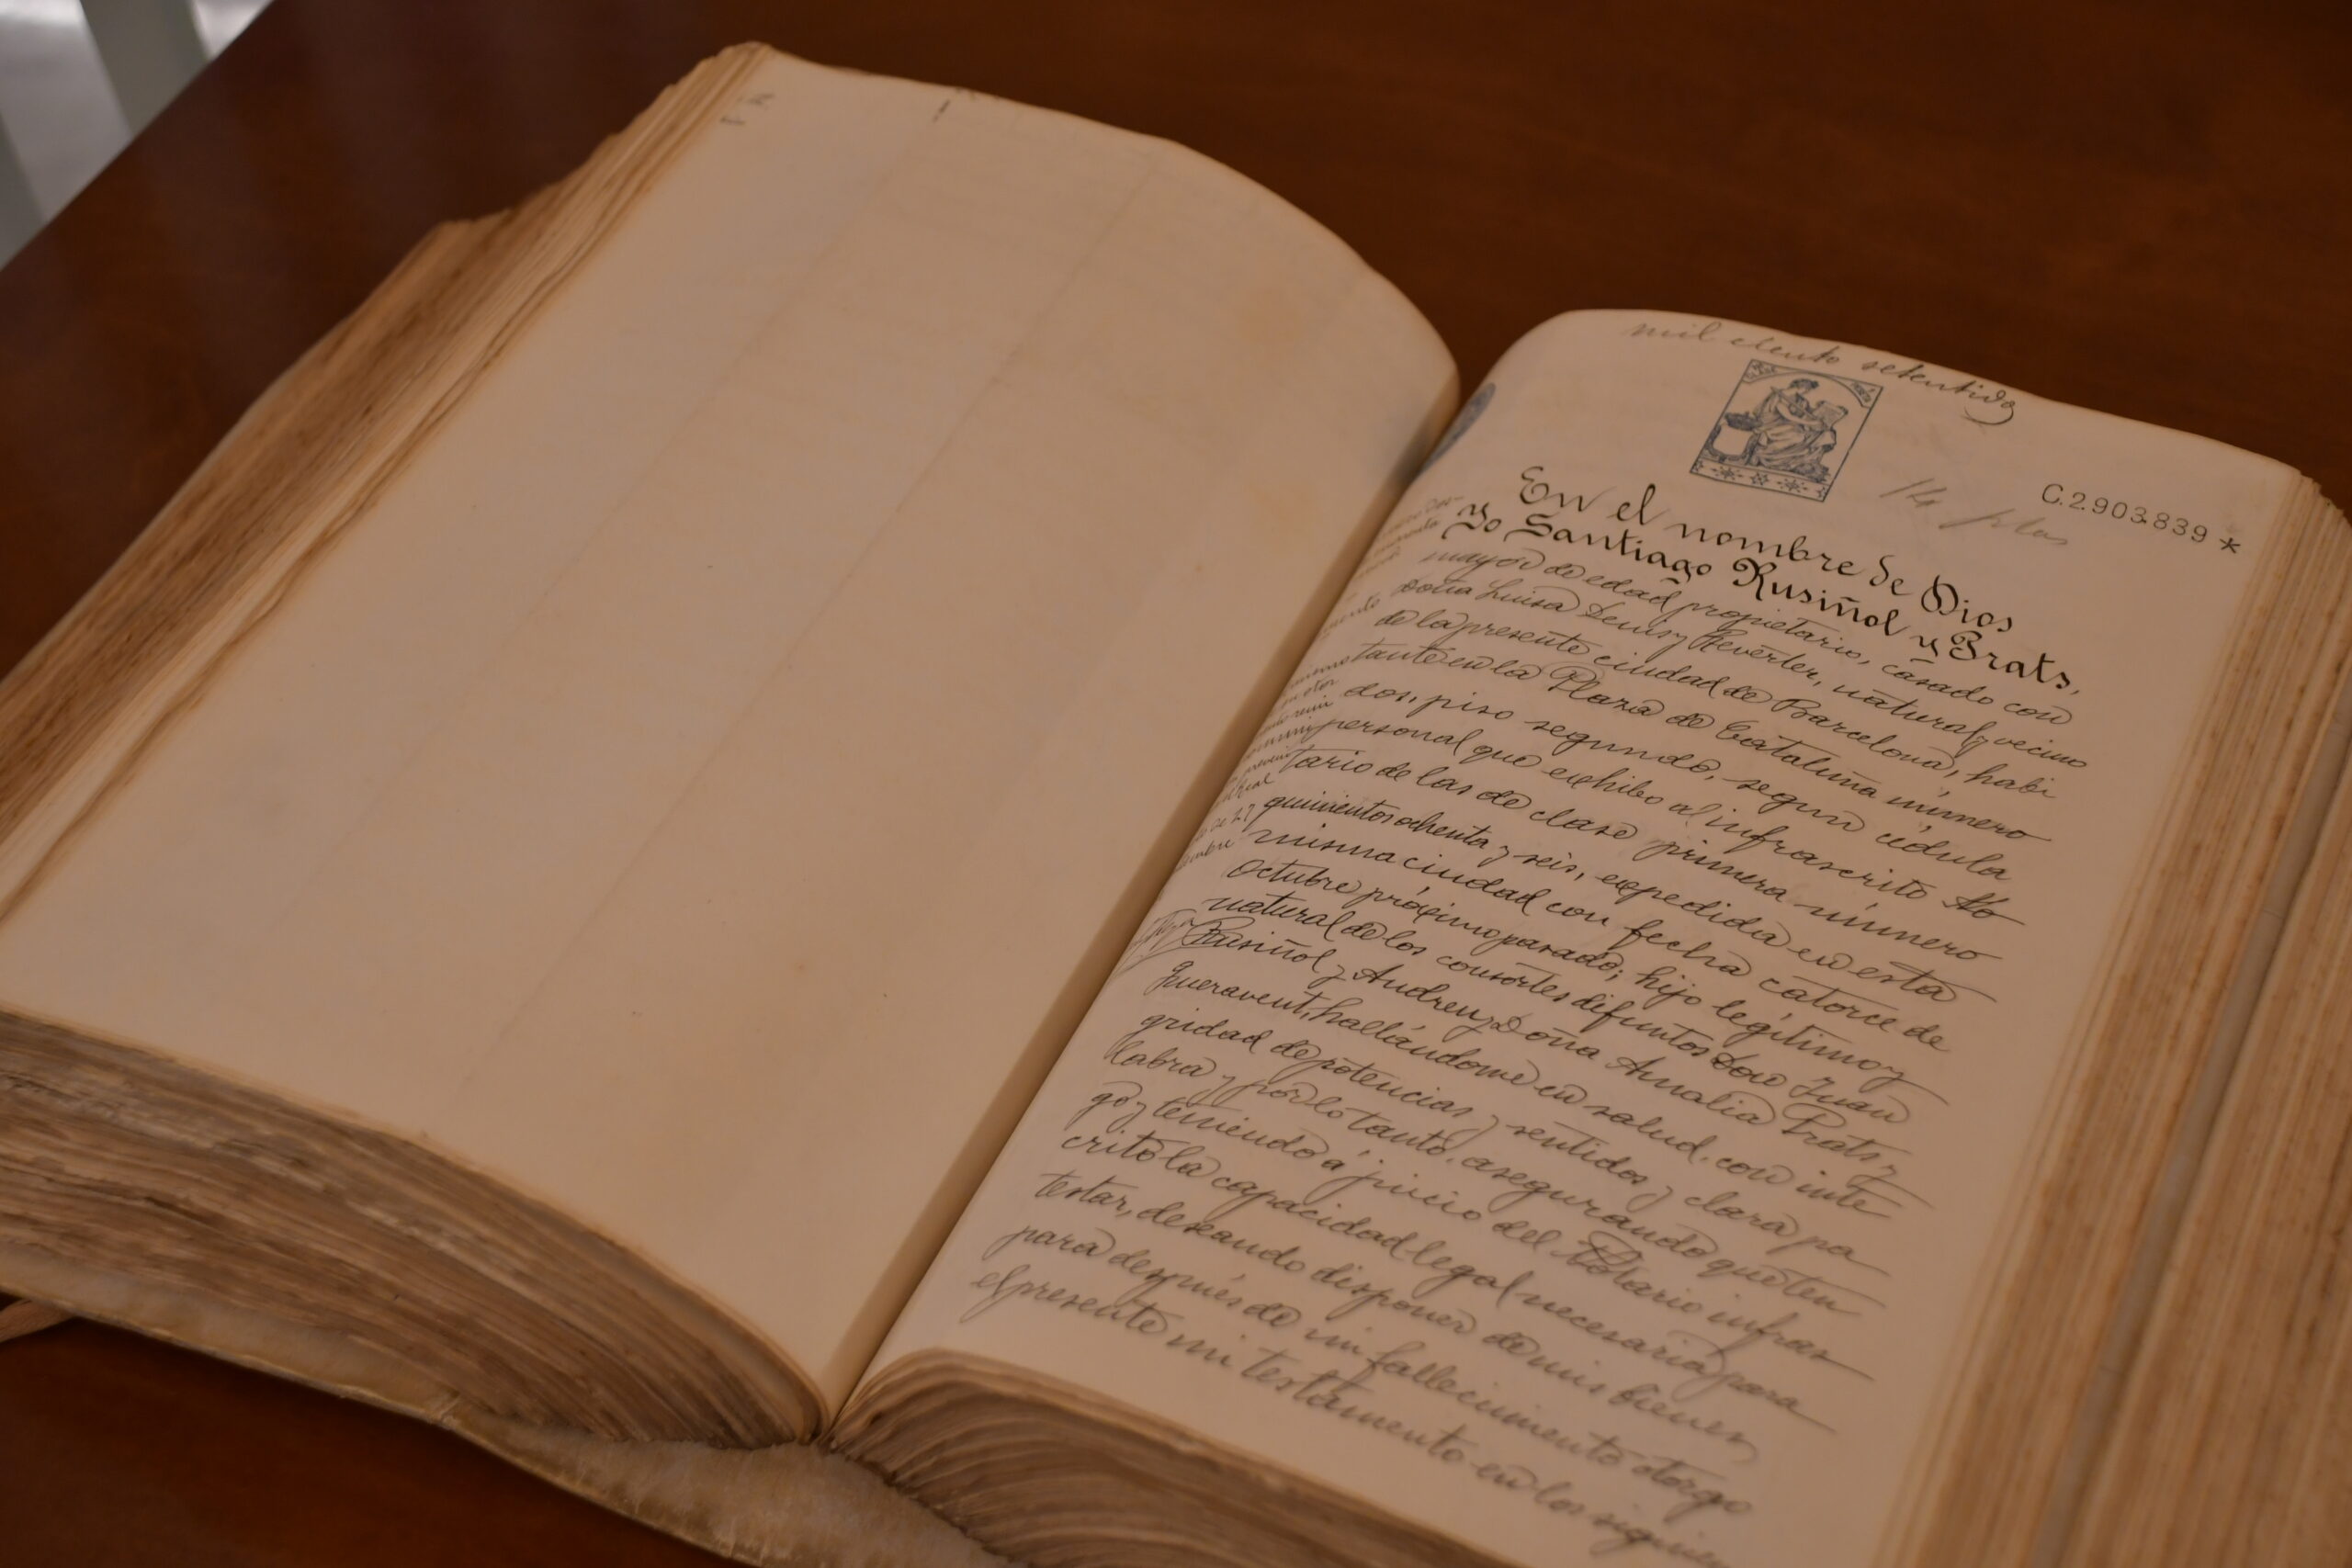 mil ciento setentidos
14 ptas
C.2.903.839 *
En el nombre de Dios
Yo Santiago Rusiñol y Prats,
mayor de edad, propietario, casado con
Doña Luisa Denis y Reverter, natural y vecino
de la presente ciudad de Barcelona, habi
tante en la Plaza de Cataluña número
dos, piso segundo, segun cédula
personal que exhibo al infrascrito No
tario de las de clase primera número
quinientos ochenta y seis, expedida en esta
misma ciudad con fecha catorce de
Octubre próximo pasado; hijo legítimo y
natural de los consortes difuntos Don Juan
Rusiñol y Andreu y Doña Amalia Prats y
hallándome en salud, con inte
gridad de potencias y sentidos y clara pa
labra y por lo tanto, asegurando que ten
go y teniendo á juicio del Notario infras
crito la capacidad legal necesaria para
testar, deseando disponer de mis bienes
para después de mi fallecimiento otorgo
el presente mi testamento en los siguien